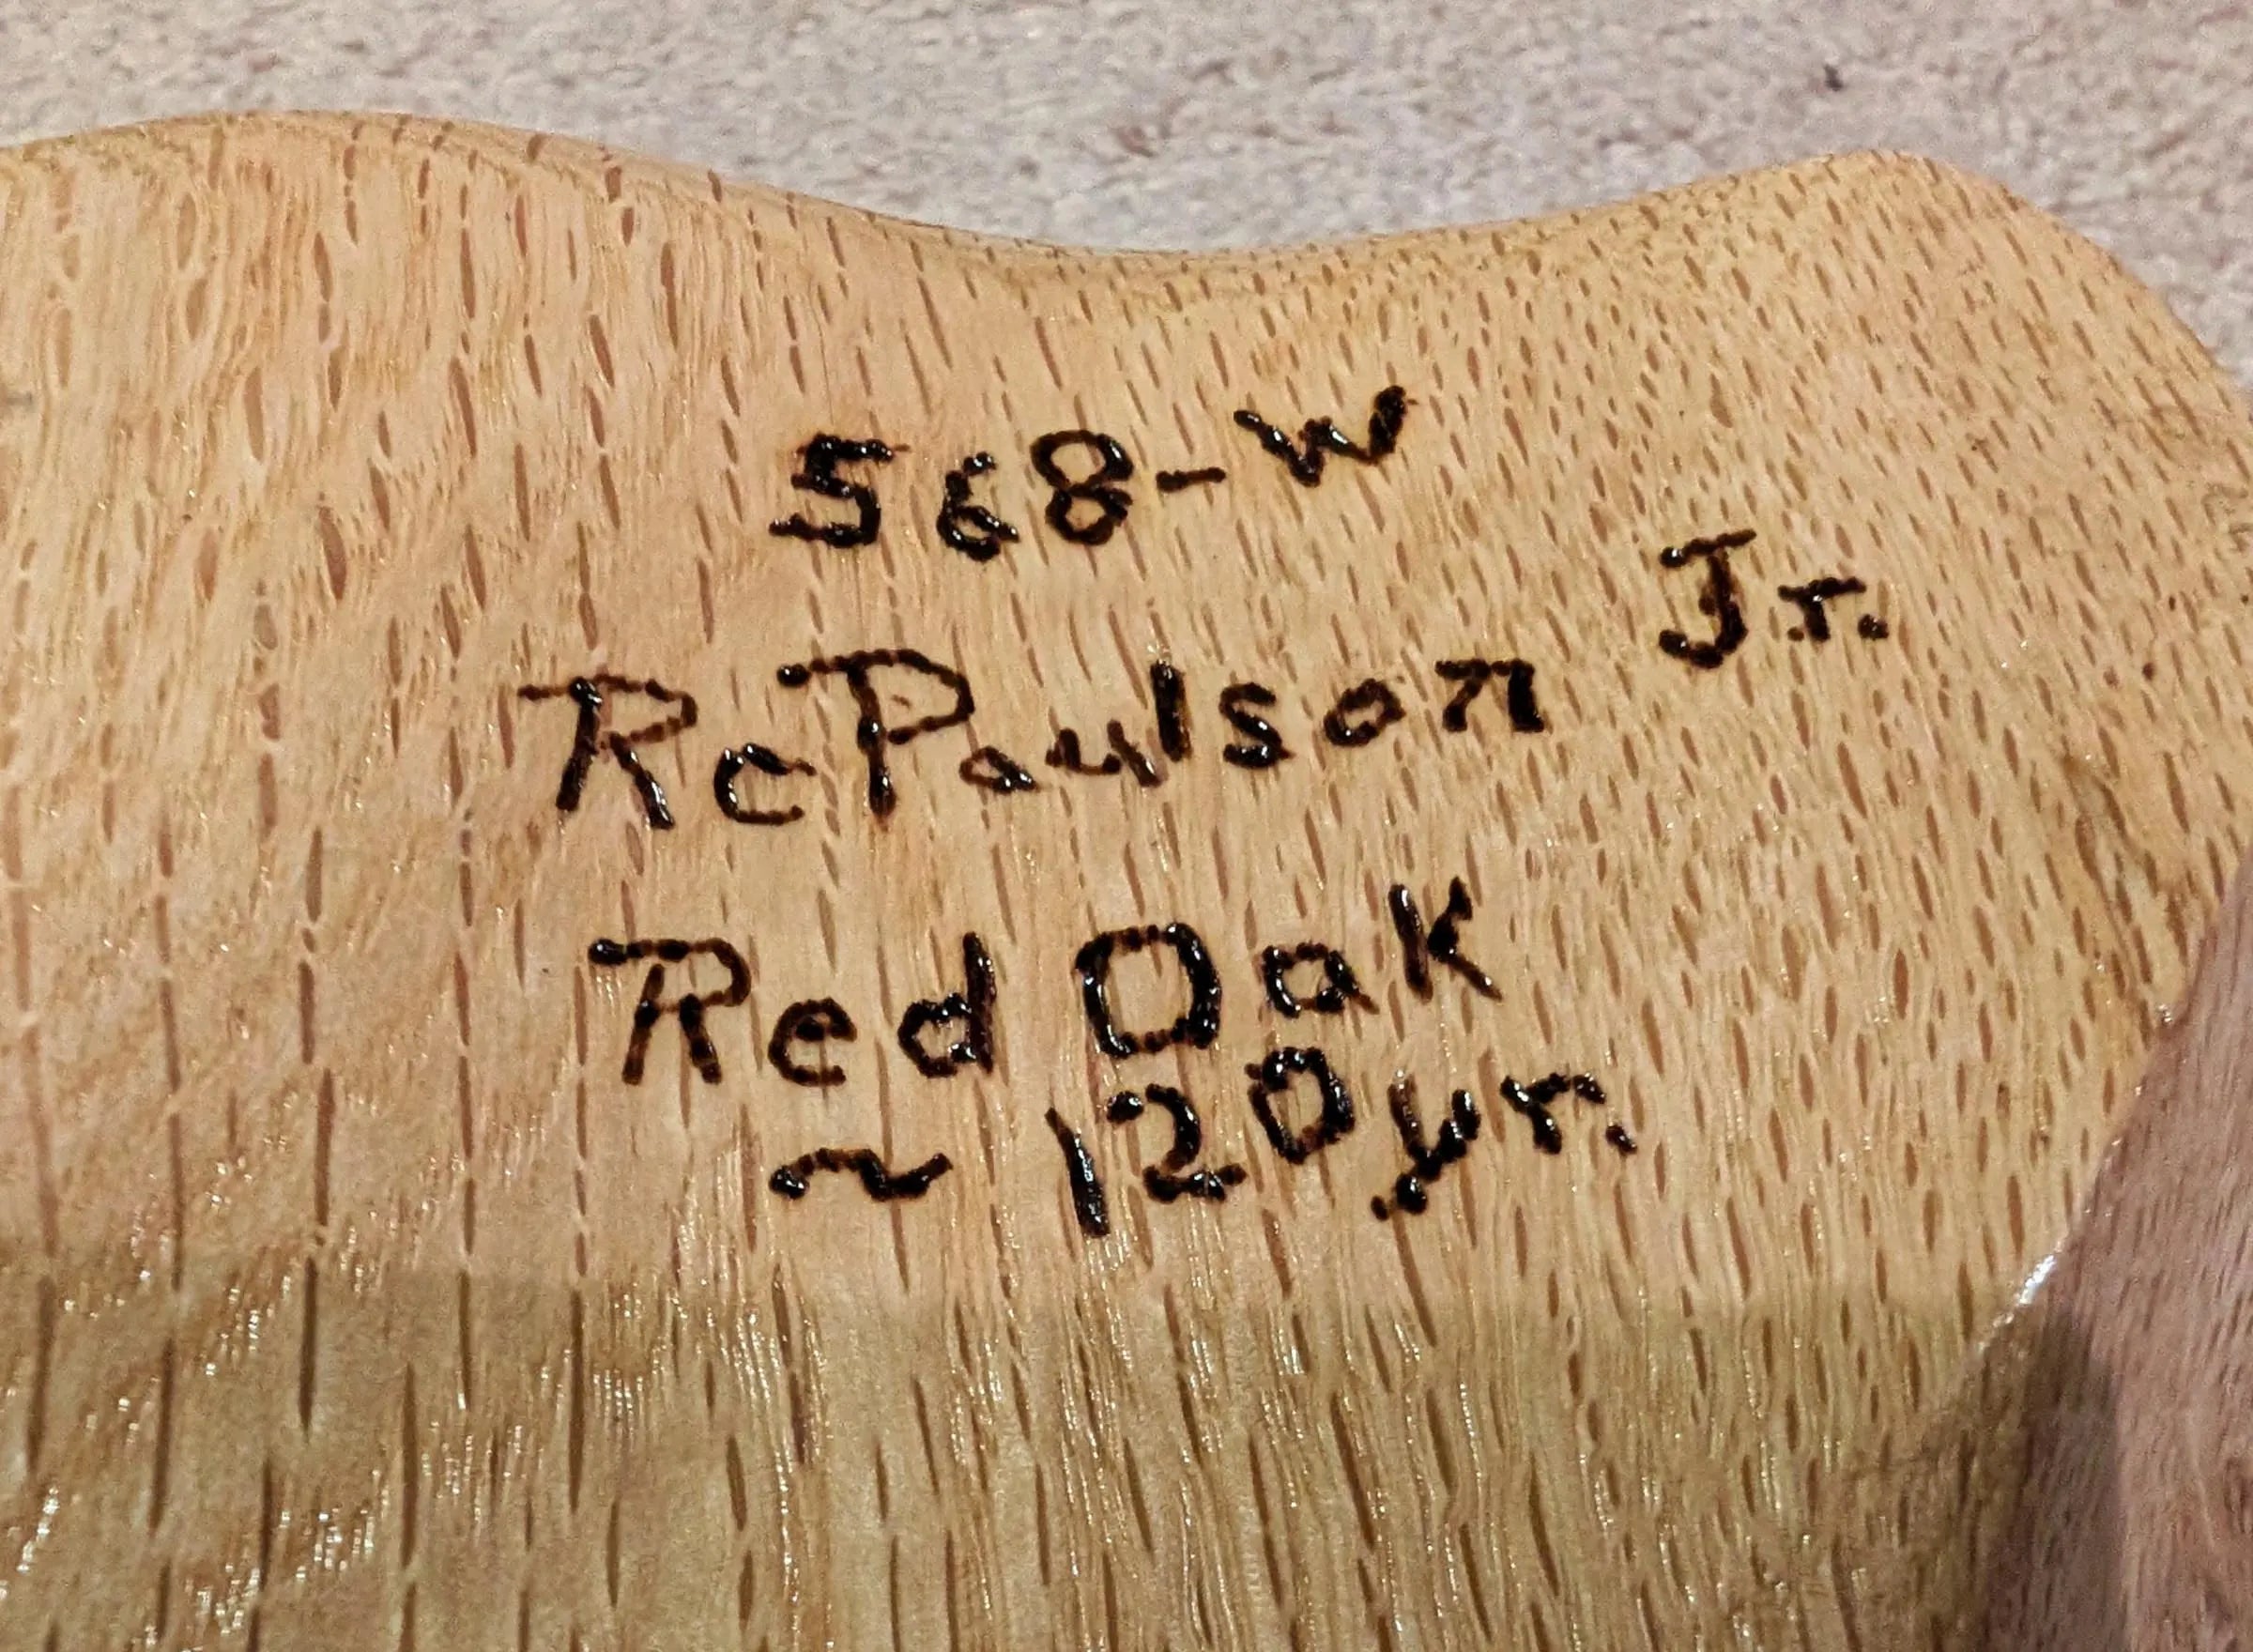 568-W
RcPaulson Jr.
Red Oak
~ 120yr.